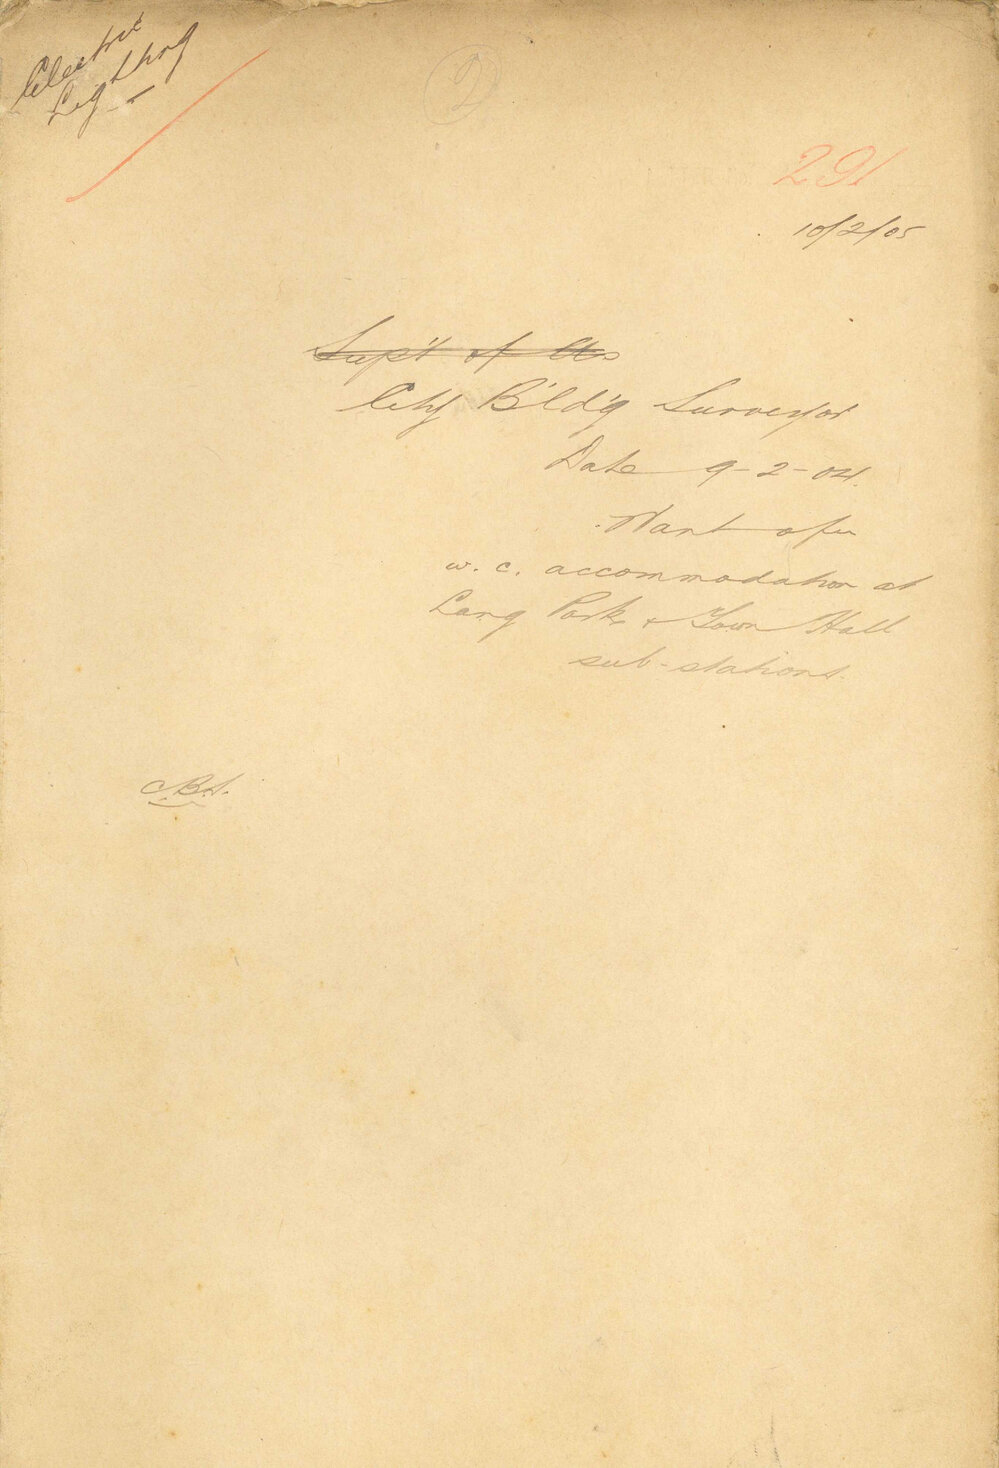 Electric
Lighting
2
291
10/2/05
Sup't of
City B'ld'g Surveyor
Date 9-2-04.
Want of
w. c. accommodation at
Lang Park & Town Hall
sub-stations.
C.B.S.